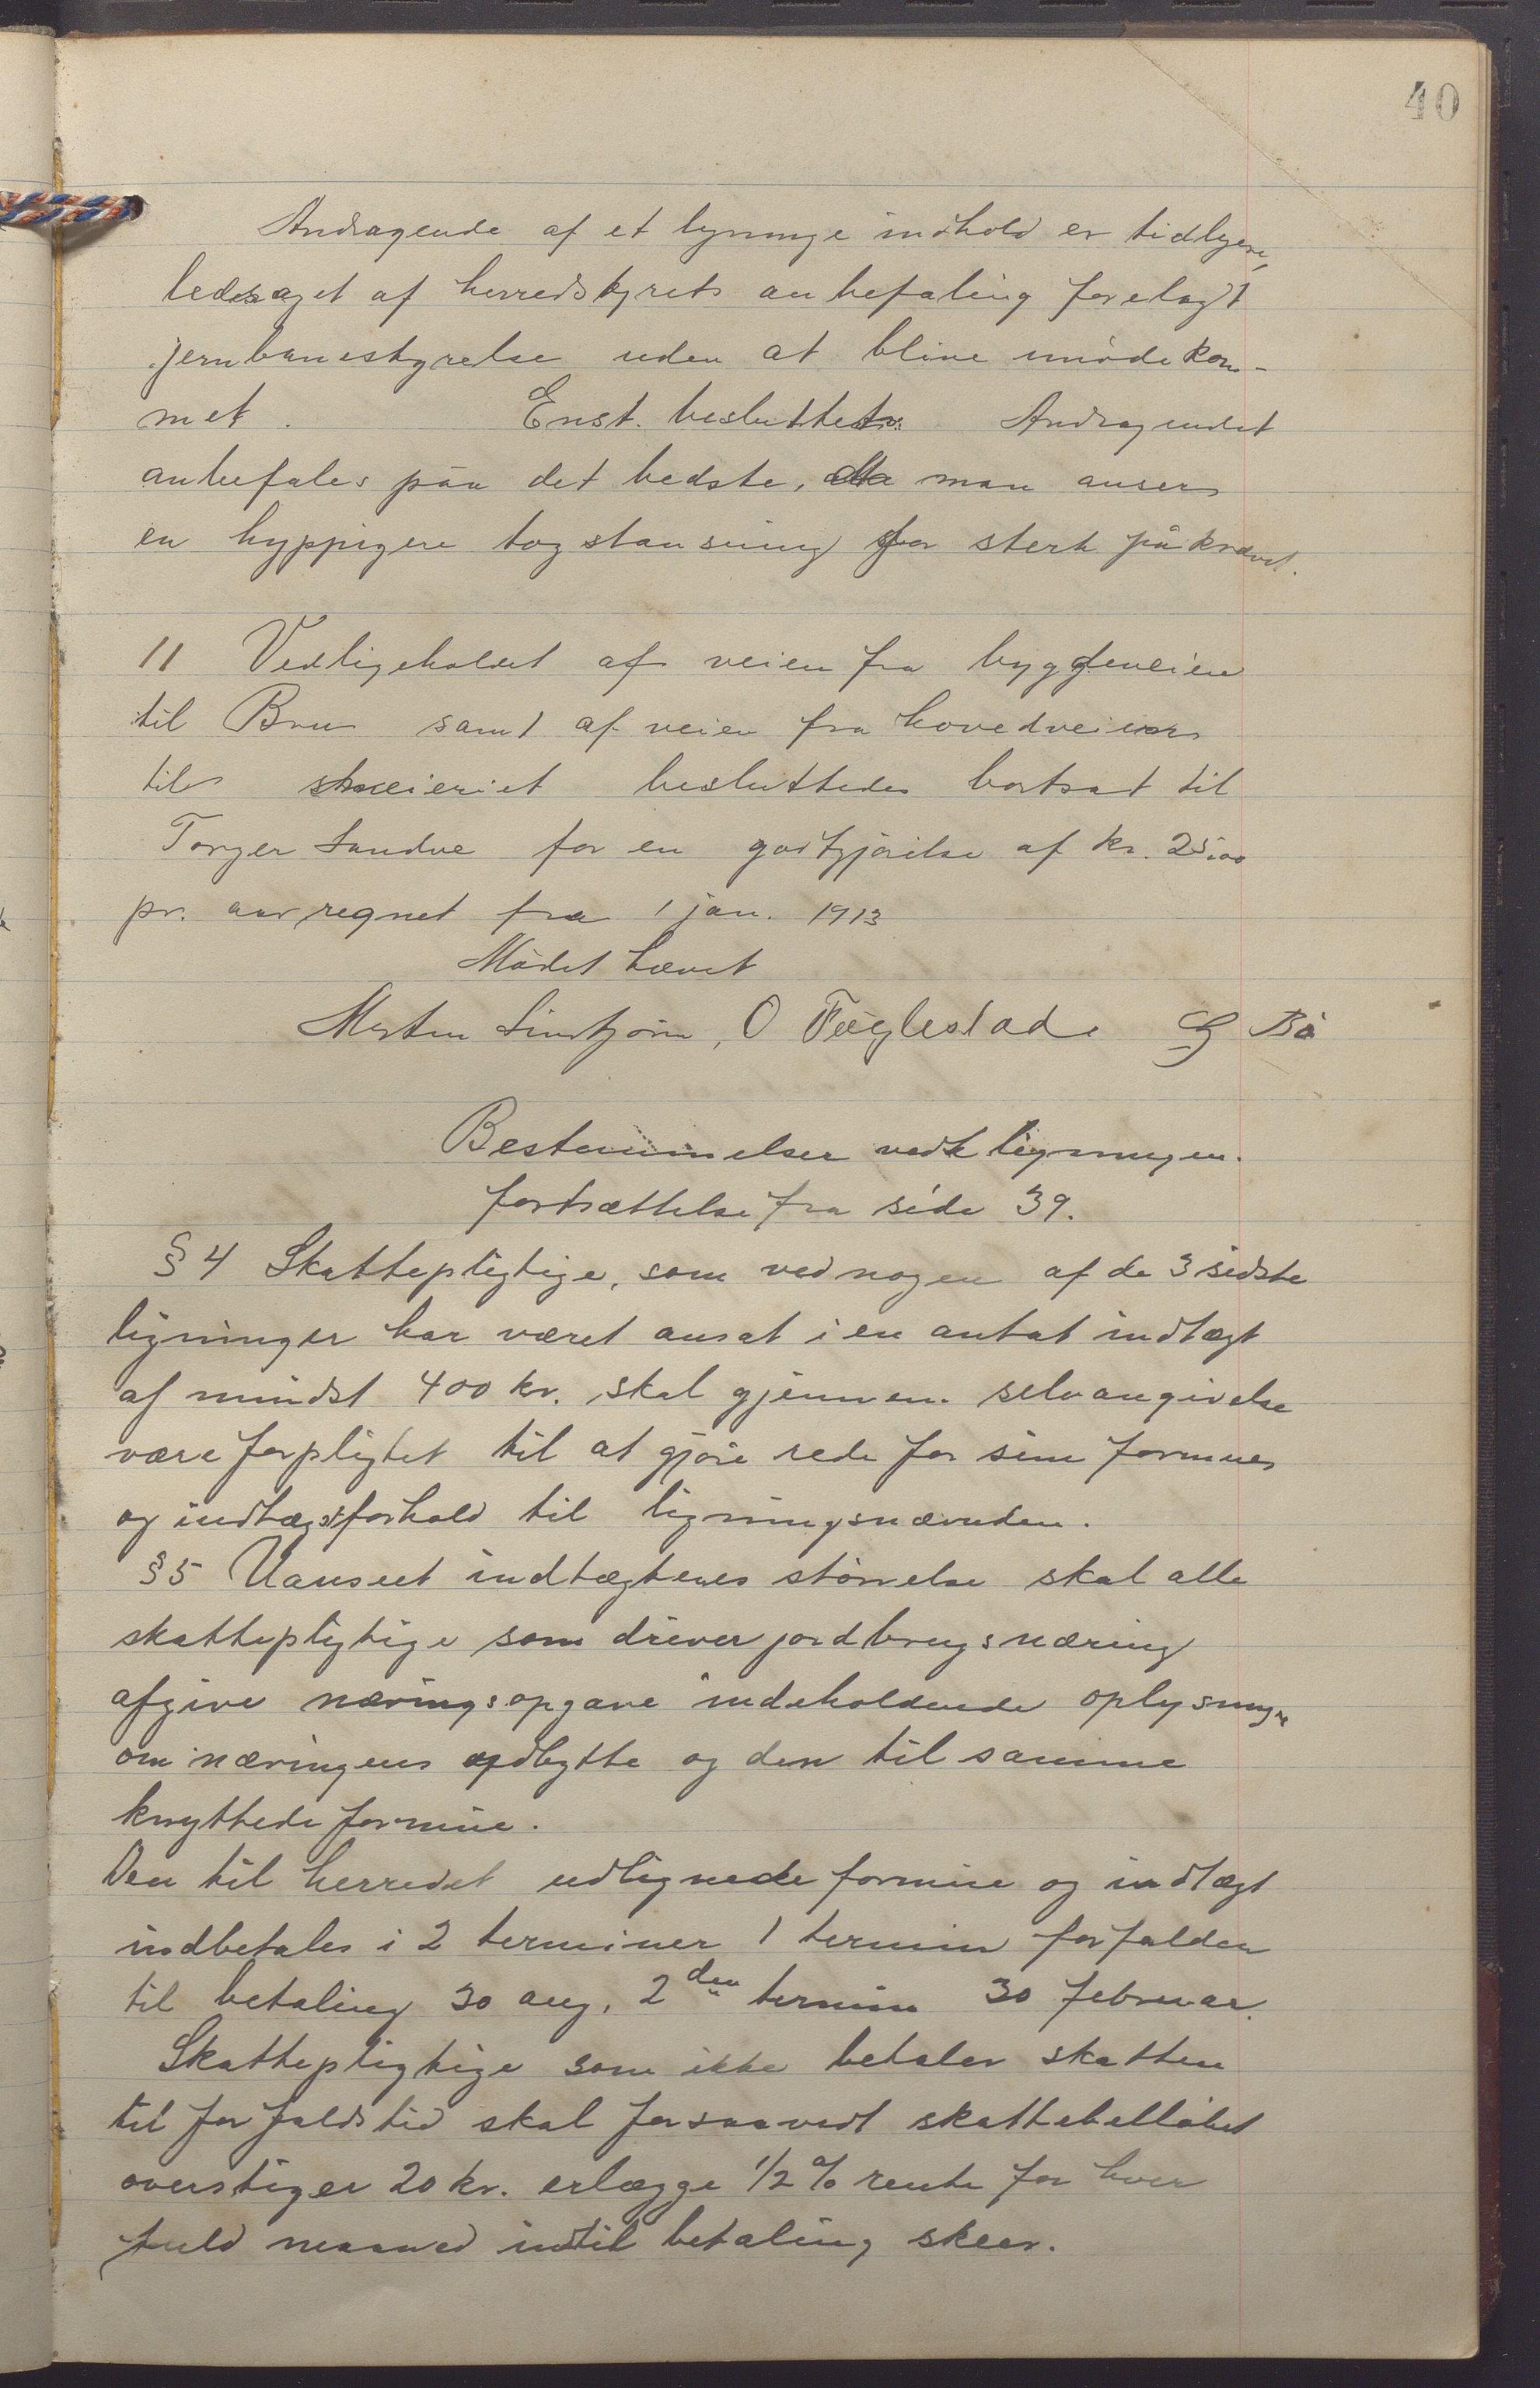 40
Andragende af et lignende indhold er tidligere,
ledsaget af herredstyrets anbefaling forelagt
jernbanestyrelse uden at blive imødekom-
met. Enst. besluttet: Andragendet
anbefales paa det bedste, da man anser
en hyppigere togstansning for sterk påkrævet.
11 Vedligeholdet af veien fra bygdeveien
til Bru samt af veien fra hovedveien
til meieriet besluttedes bortsat til
Torger Sandve for en godtgjørelse af kr. 25.00
pr. aar regnet fra 1 jan. 1913
Mødet hævet
Morten Lindtjørn, O Fuglestad G Bø
Bestemmelser vedk ligningen.
fortsættelse fra side 39.
§ 4 Skattepligtige, som ved nogen af de 3 sidste
ligninger har været ansat i en antat indtægt
af mindst 400 kr. skal gjennem selvangivelse
være forpligtet til at gjøre rede for sine formues
og indtægtsforhold til ligningsnævnden.
§ 5 Uanseet indtægtenes størrelse skal alle
skattepligtige som driver jordbrugsnæring
afgive næringsopgave indeholdende oplysninger
om næringens udbytte og den til samme
knyttede formue.
Den til herredet udlignede formue og indtægt
indbetales i 2 terminer 1 termin forfalden
til betaling 30 aug, 2den termin 30 februar.
Skattepligtige som ikke betaler skatten
til forfaldstid skal forsaavidt skattebelløbet
overstiger 20 kr. erlægge 1/2 % rente for hver
fuld maaned indtil betaling skeer.